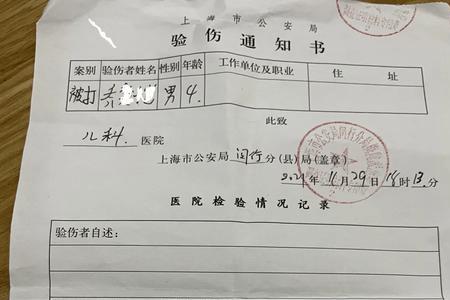 上海市公安局
验伤通知书
案别 验伤者姓名 性别 年龄 工作单位及职业 住址
被打 男 4.
此致
儿科. 医院
上海市公安局 闵行 分(县)局(盖章)
2021年 11月 29日 18时 13.分
医院检验情况记录
验伤者自述: